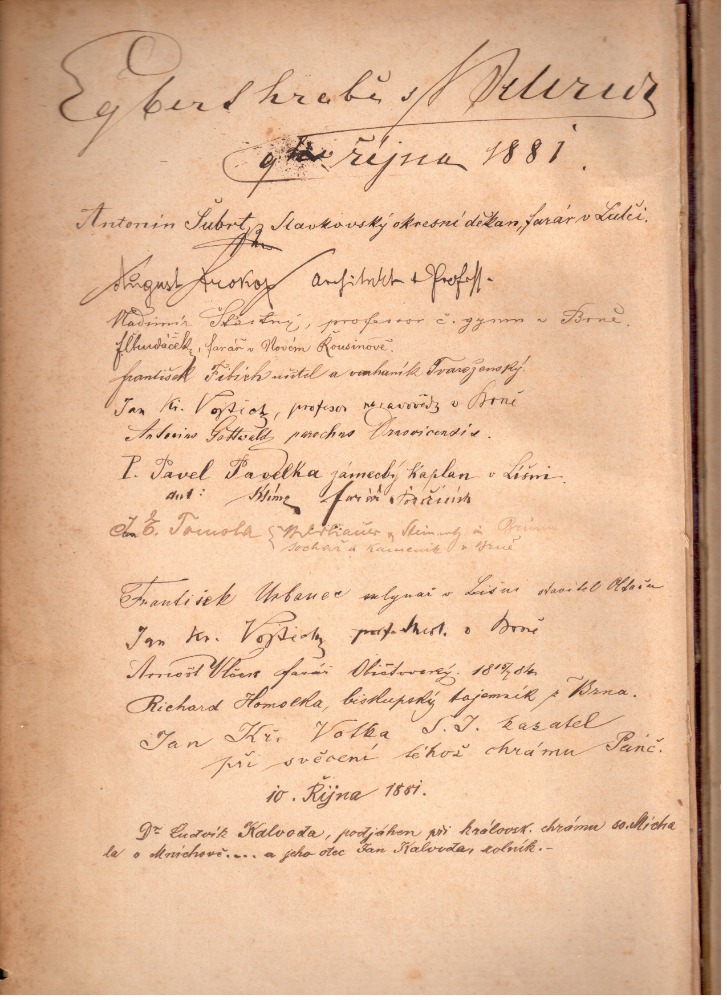 Egbert hrabě s
9ho října 1881.
Antonín Šubrt, Slavkovský okresní děkan, farář v Lulči.
August Prokop Architekt & Profess.
Vladimír Šťastný, professor č. gymn. v Brně.
farář v Novém Rousinově.
František Fibich učitel a Tvaroženský.
Jan Kr. Vojtěch, profesor v Brně
Antonius Gottwald parochus Drnovicensis.
P. Pavel Pavelka zámecký kaplan v Líšni.
farář
J. E. Tomola Bildhauer & Steinmetz in Brünn
sochař a kameník v Brně
František Urbanec mlynář v Líšni stavitel Oltáru
Jan Kr. Vojtěch v Brně
Arnošt Vlček farář
Richard Homolka, biskupský tajemník z Brna.
Jan Kř. Votka S. J. kazatel
při svěcení téhož chrámu Páně.
10. Října 1881.
Dr Ludvík Kalvoda, podjáhen při královsk. chrámu sv. Micha
la v Mnichově.... a jeho otec Jan Kalvoda, rolník.-